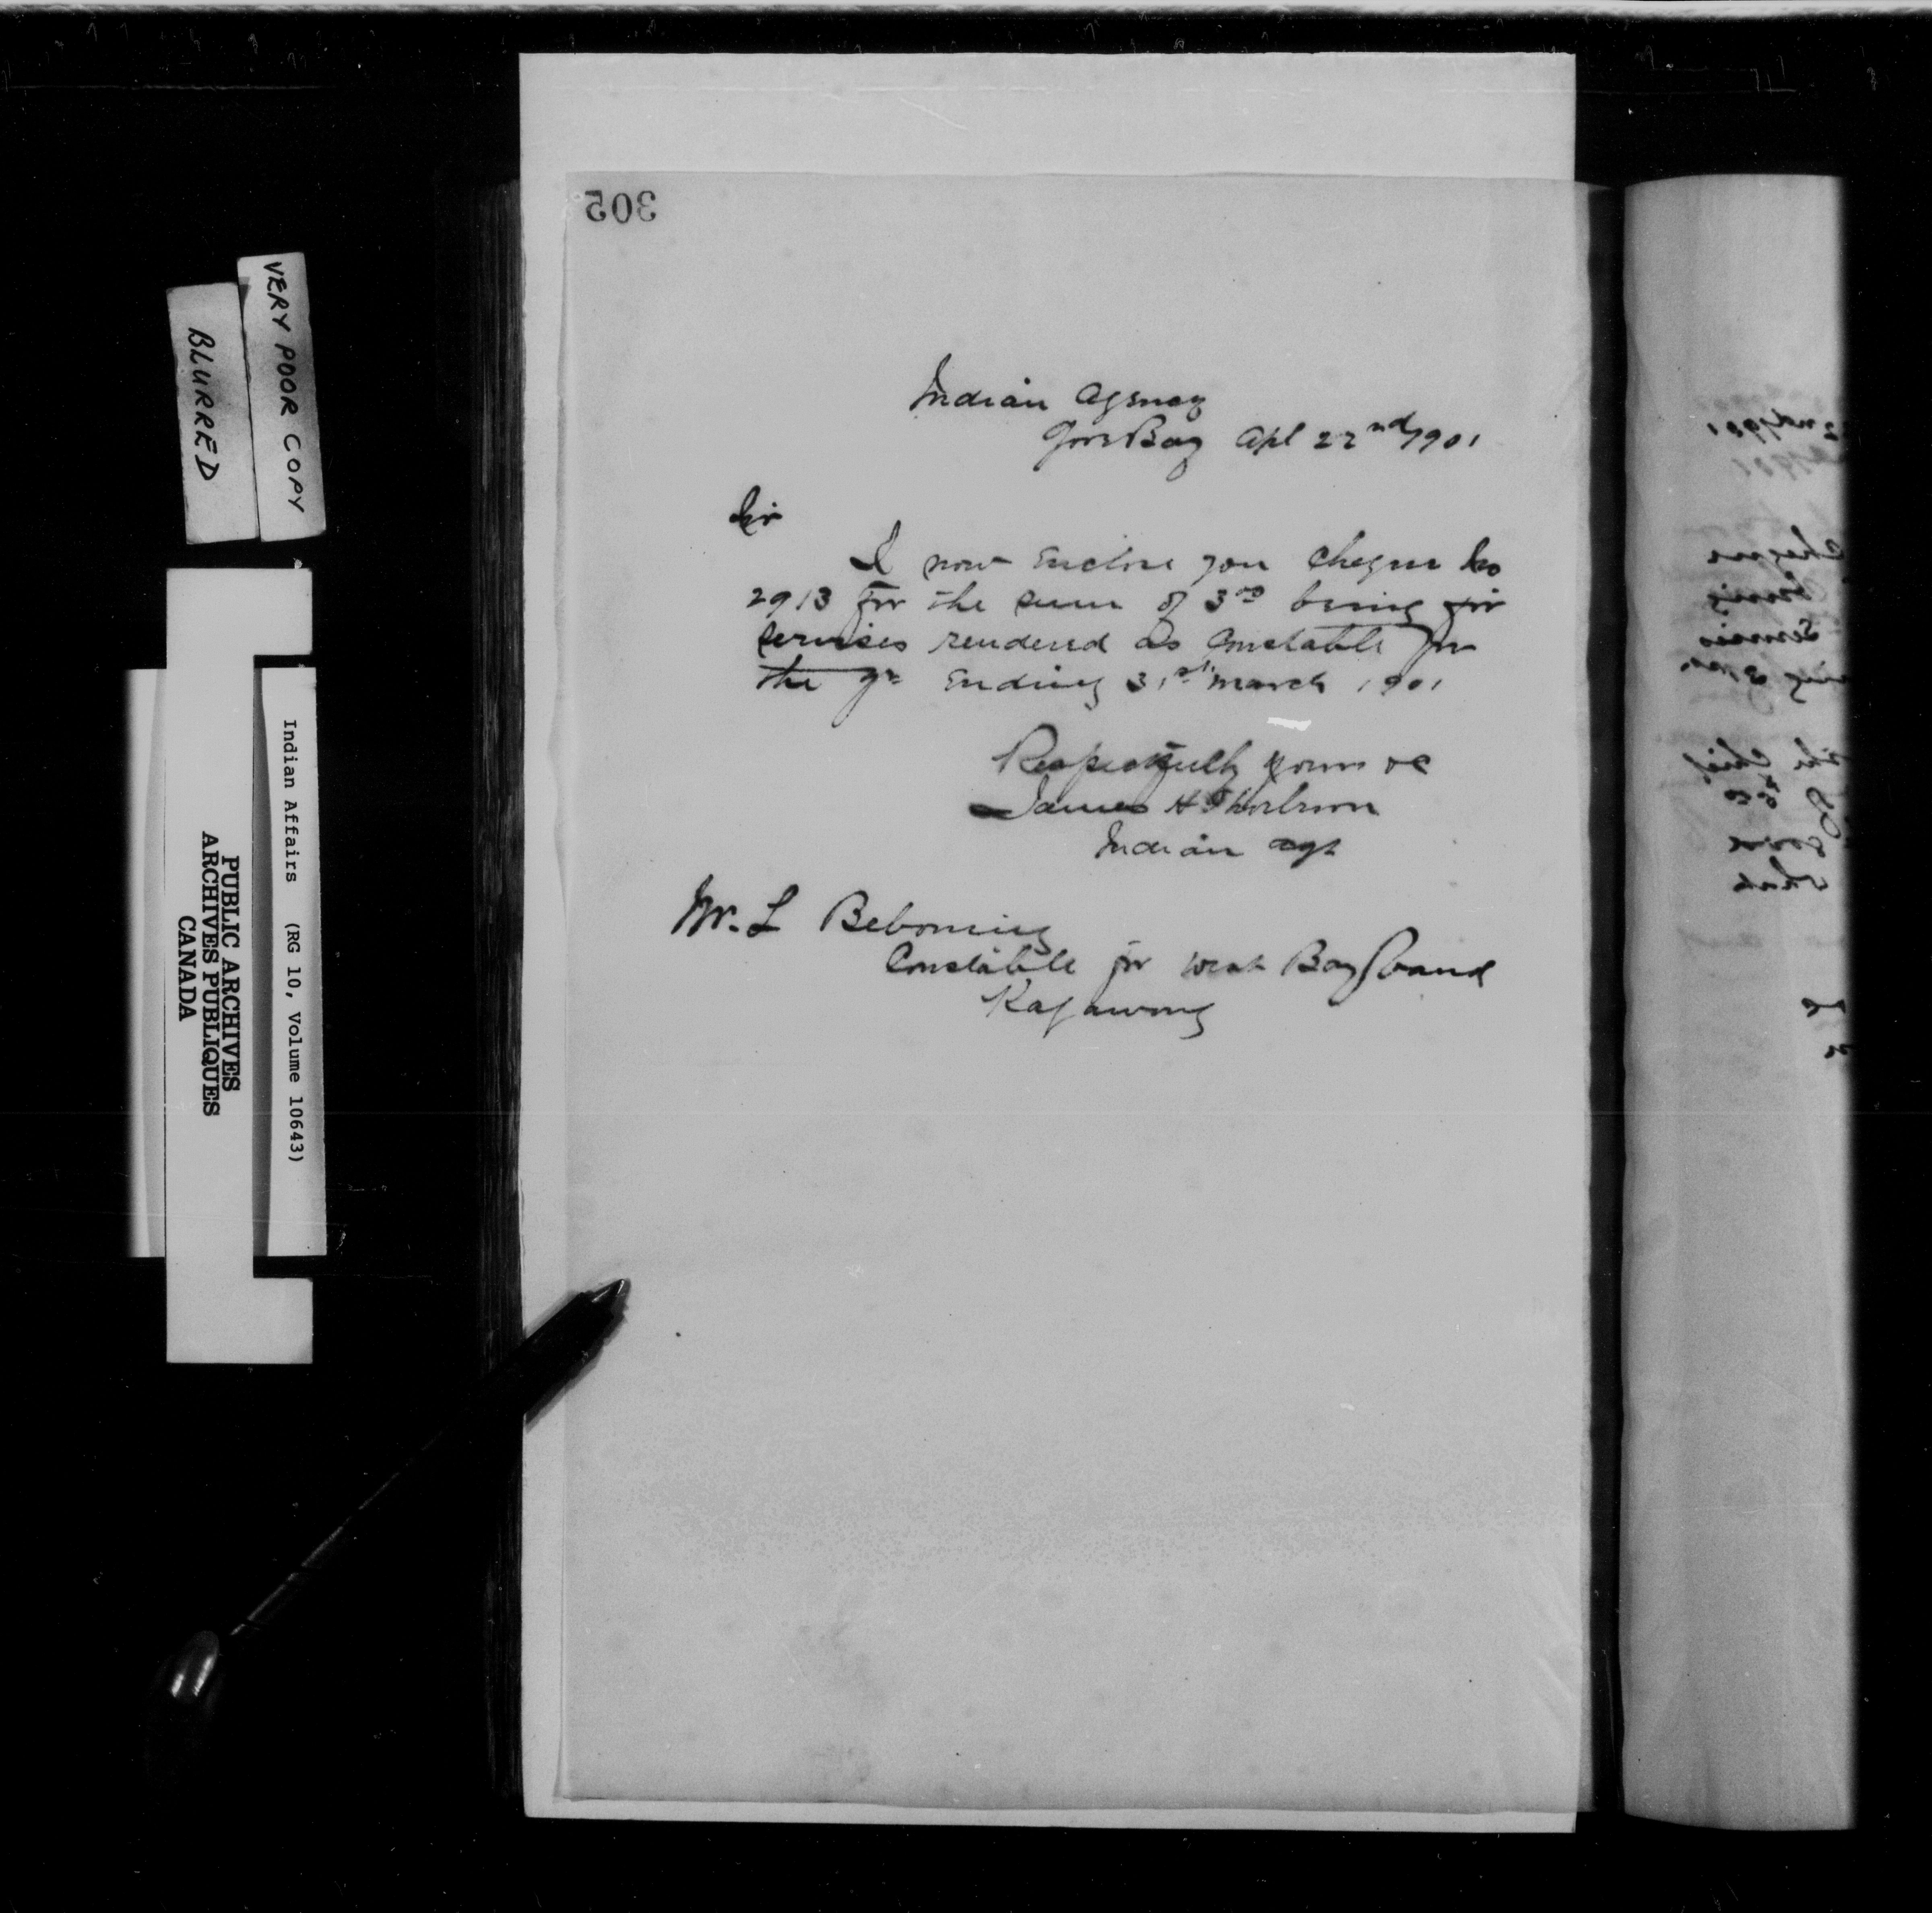 305
Indian Agency
Gore Bay Apl 22nd 1901
Sir
I now Enclose you Cheque No
2913 for the sum of 3.00 being for
services rendered as Constable for
the qr Ending 31st March 1901
Respectfully yours &c
James H Thorburn
Indian agt
Mr. L Bebonang
Constable for West Bay Band
Kagawong
VERY POOR COPY
BLURRED
Indian Affairs (RG 10, Volume 10643)
PUBLIC ARCHIVES
ARCHIVES PUBLIQUES
CANADA